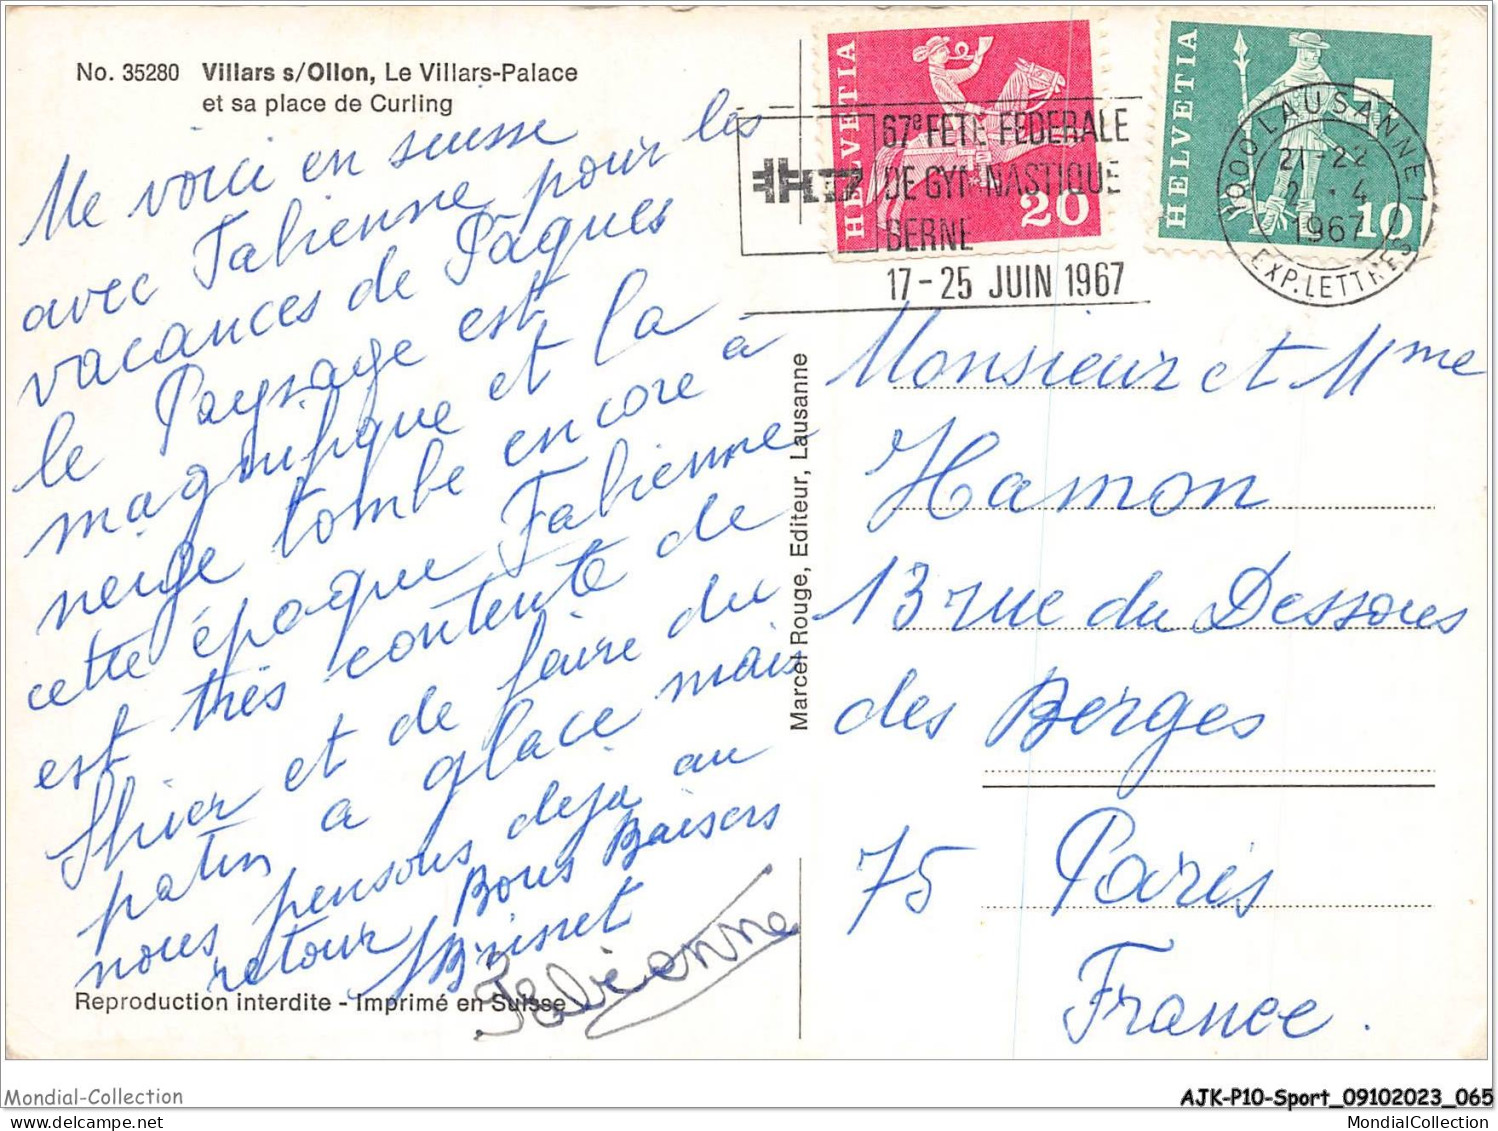 No. 35280 Villars s/Ollon, Le Villars-Palace
et sa place de Curling
Me voici en suisse
avec Fabienne pour les
vacances de Pâques
le Paysage est
magnifique et la
neige tombe encore à
cette époque Fabienne
est très contente de
skier et de faire du
patin a glace mais
nous pensons deja au
retour Bons Baisers
Brisset
Fabienne
Reproduction interdite - Imprimé en Suisse
Marcel Rouge, Editeur, Lausanne
HELVETIA
20
HELVETIA
10
67e FETE FEDERALE
DE GYMNASTIQUE
BERNE
17-25 JUIN 1967
1000 LAUSANNE 1
21-22
2.-4
1967
EXP. LETTRES
Monsieur et Mme
Hamon
13 rue du Dessous
des Berges
75 Paris
France.
Mondial-Collection
AJK-P10-Sport_09102023_065
MondialCollection